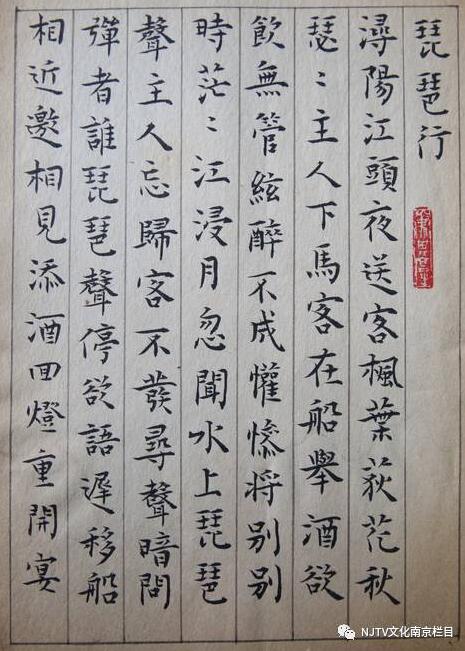 琵琶行
潯陽江頭夜送客楓葉荻花秋
瑟〻主人下馬客在船舉酒欲
飲無管絃醉不成懽慘将别别
時茫〻江浸月忽聞水上琵琶
聲主人忘歸客不發尋聲暗問
彈者誰琵琶聲停欲語遲移船
相近邀相見添酒回燈重開宴
NJTV文化南京栏目